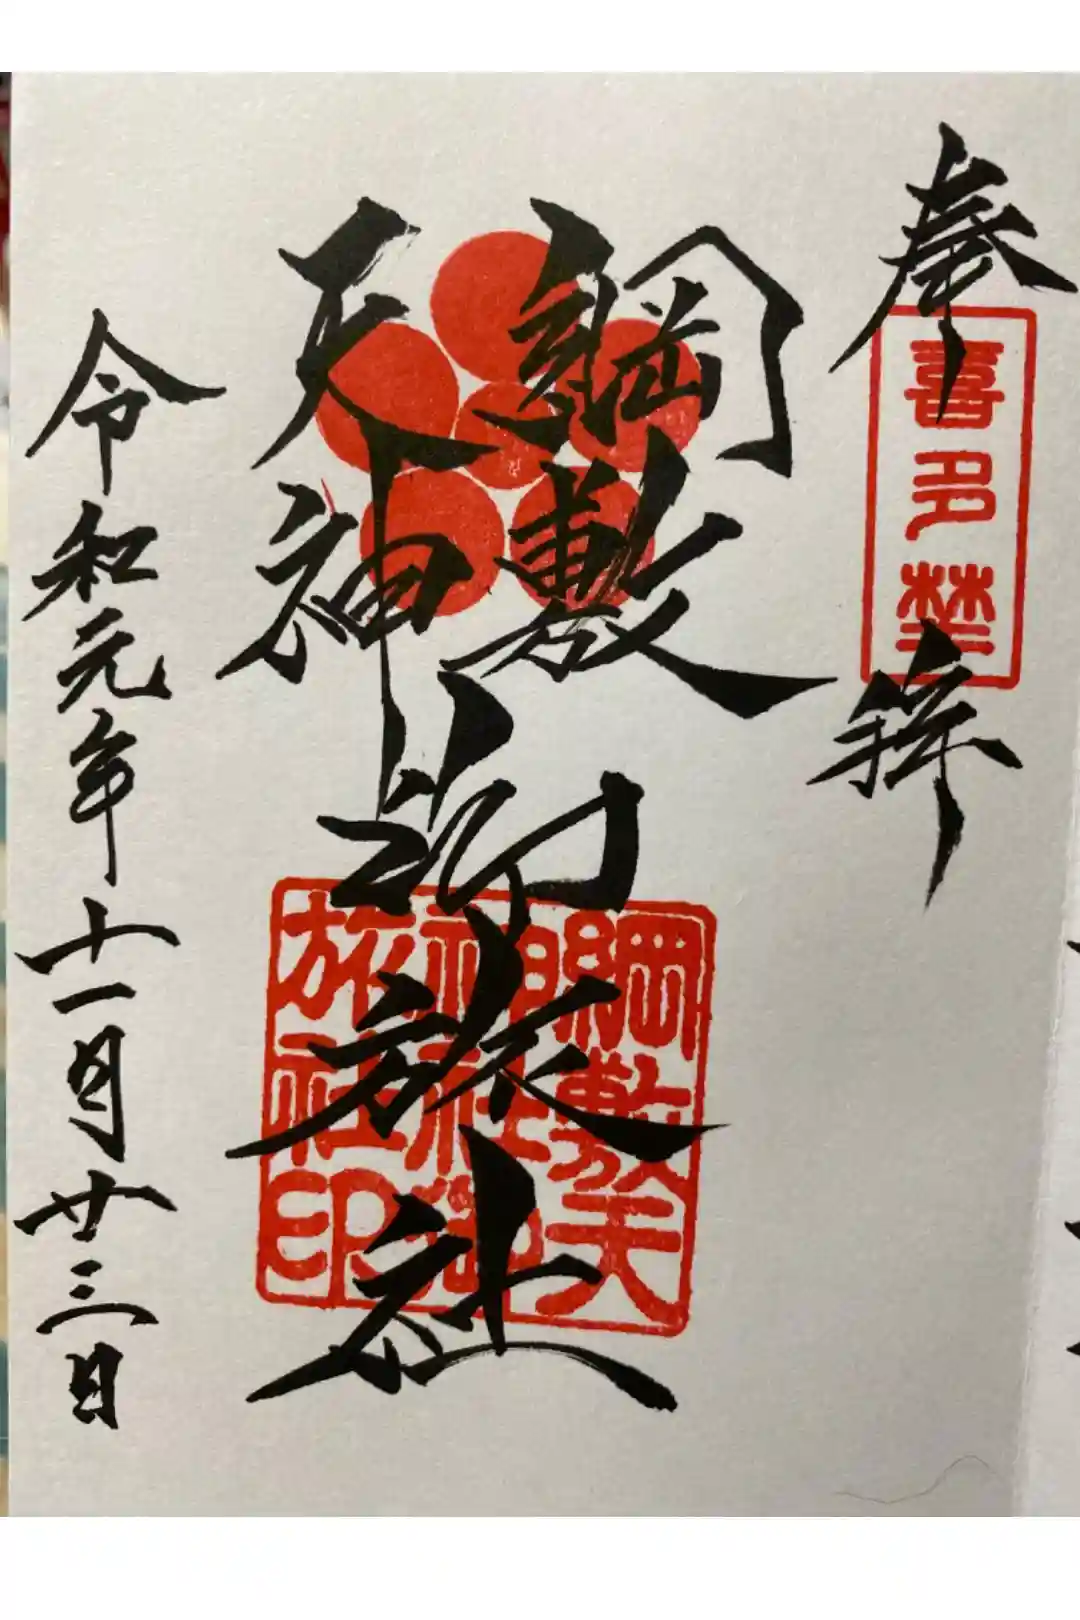 奉拝
喜多埜
綱敷
天神
御旅社
綱敷天
神社御
旅社印
令和元年十一月廿三日